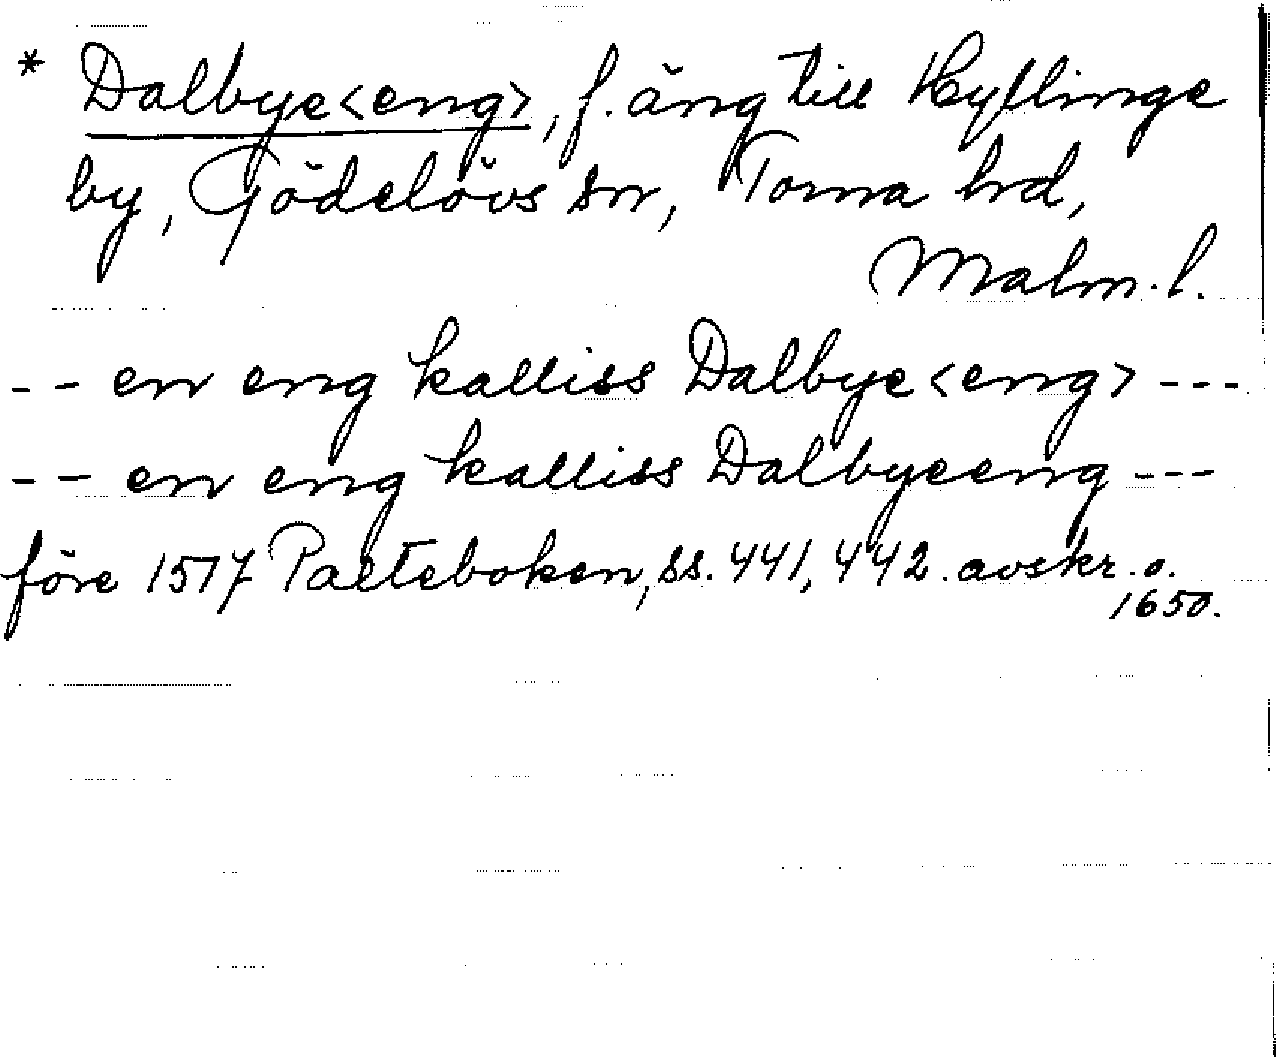 * Dalbye<eng>, f. äng till Kyflinge
by, Gödelövs sn, Torna hd,
Malm. l.
-- en eng kalliss Dalbye<eng> ---
-- en eng kalliss Dalbyeeng ---
före 1517 Palteboken, ss. 441, 442. avskr. o.
1650.